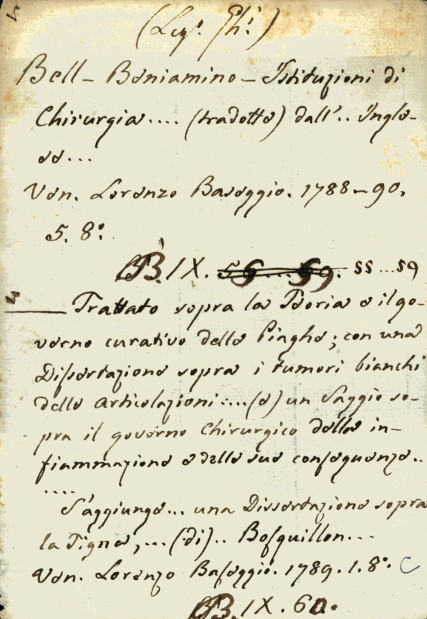 (Leg. Gh.)
Bell - Beniamino - Istituzioni di
Chirurgia.... (tradotte) dall'.. Ingle-
se...
Ven. Lorenzo Baseggio. 1788-90.
5. 8.°
B. IX. 55...59
Trattato sopra la Teoria e il go-
verno curativo delle Piaghe; con una
Dissertazione sopra i tumori bianchi
delle articolazioni.... (e) un Saggio so-
pra il governo Chirurgico della in-
fiammazione e delle sue conseguenze..
....
S'aggiunge... una Dissertazione sopra
la Tigna,... (di).. Bosquillon...
Ven. Lorenzo Baseggio. 1789. 1. 8.° C
B. IX. 60.